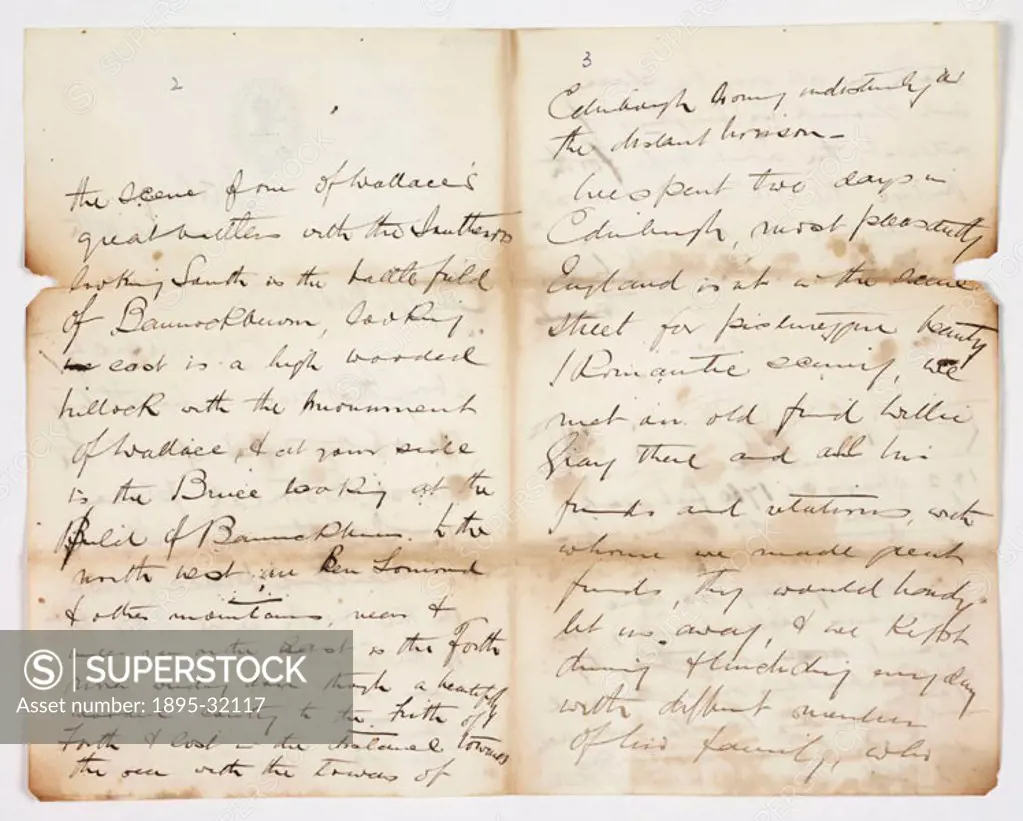 2
the scene of one of Wallace's
great battles with the Southerns
looking South is the battle field
of Bannockburn, looking
east is a high wooded
hillock with the Monument
of Wallace, & at your side
is the Bruce looking at the
Field of Bannockburn. to the
north west is Ben Lomond
& other mountains, near &
on the East is the Forth
winding down through a beautiful
country to the Frith of
Forth & lost in the distance towards
the sea with the towers of
3
Edinburgh looming indistinctly on
the distant horison -
We spent two days in
Edinburgh, most pleasantly
England is not in the same
street for picturesque beauty
& Romantic scenery, we
met an old friend Willie
Gray there and all his
friends and relations with
whom we made great
friends, they would hardly
let us away, & we kept
dining & lunching every day
with different members
of his family, who
SUPERSTOCK
Asset number:
1895-32117